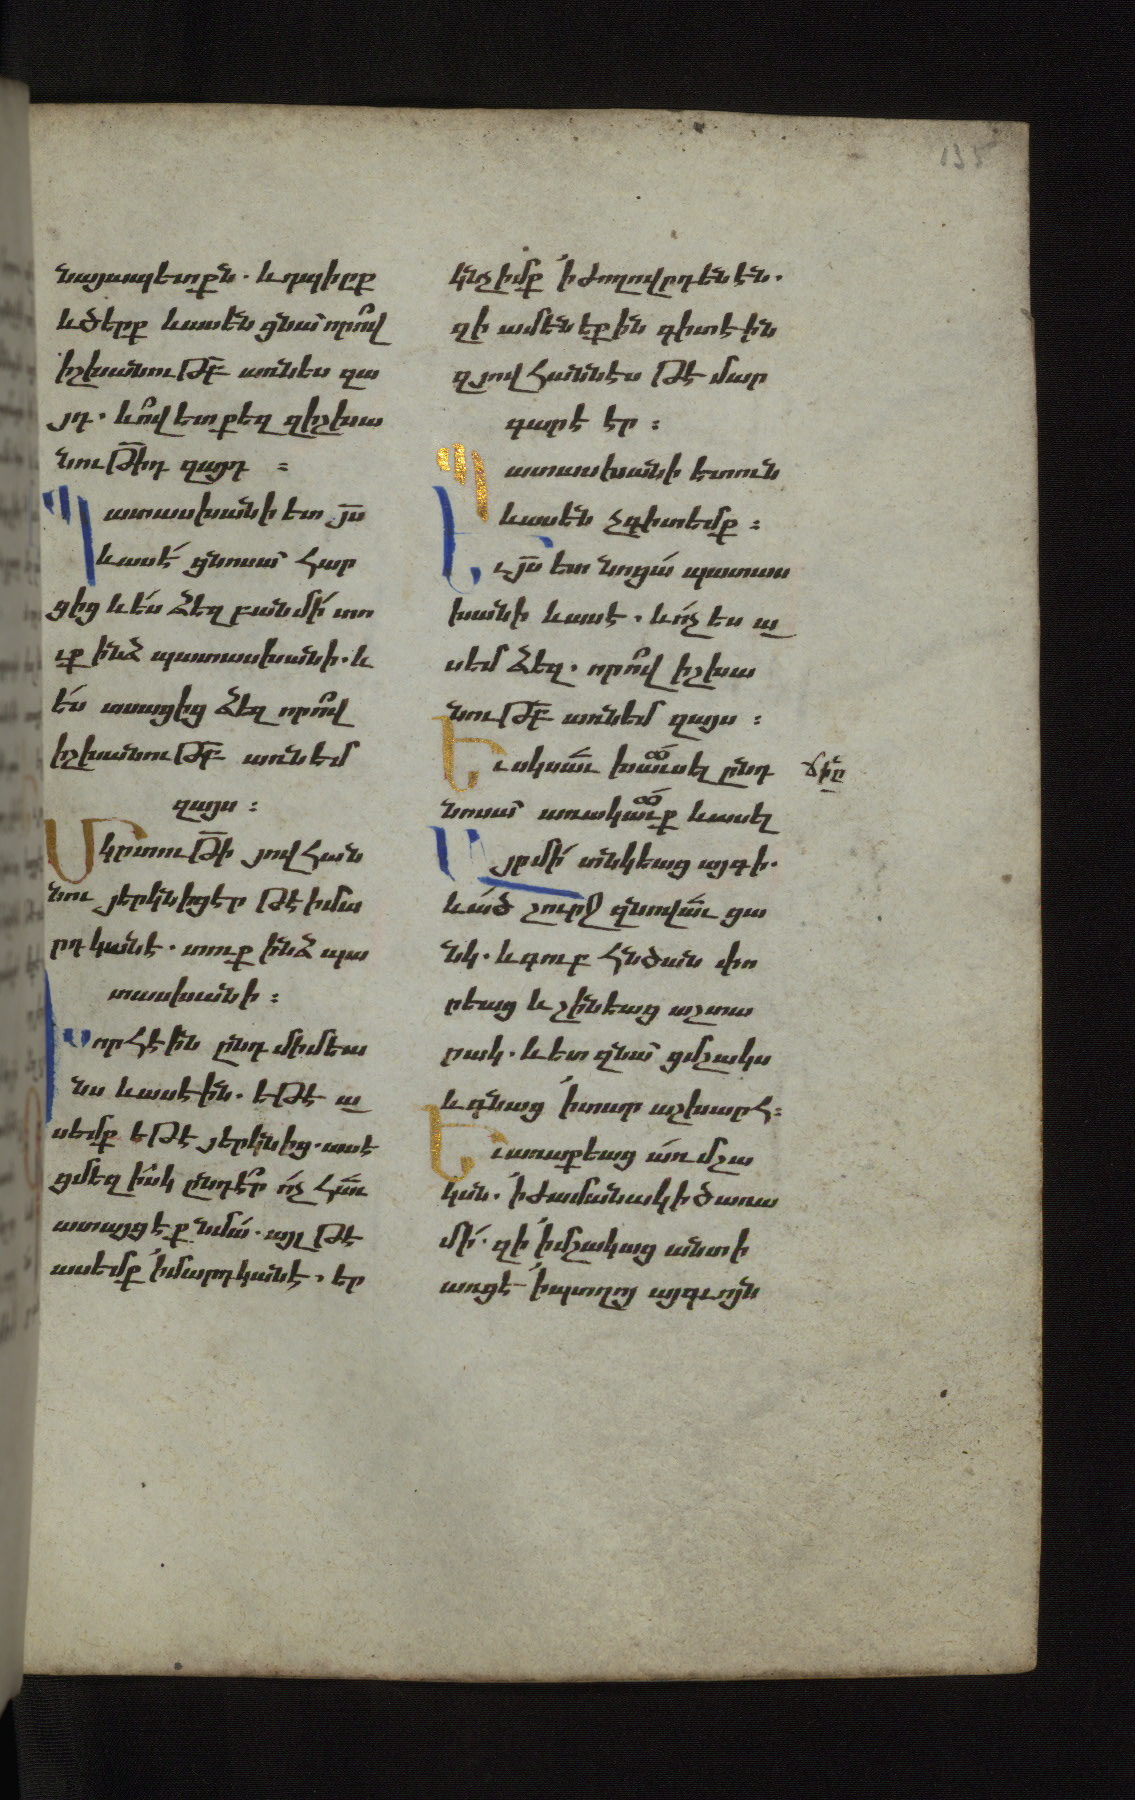 135
նայապետքն. և դպիրք
և ծերք և ասեն ցնա՝ որո՞վ
իշխանութբ առնես զա
յդ. և ո՞վ ետ քեզ զիշխա
նութիդ զայդ ։
Պատասխանի ետ յս
և ասէ՛ ցնոսա՝ հար
ցից և ե՛ս ձեզ բան մի՛ տո
ւք ինձ պատասխանի. և
ե՛ս ասացից ձեզ որո՞վ
իշխանութբ առնեմ
զայս ։
Մկրտութի յովհան
նու յերկնից էր թէ ի մա
րդկանէ. տուք ինձ պա
տասխանի ։
Խորհէին ընդ միմեա
նս և ասէին. եթէ ա
սեմք եթէ յերկնից. ասէ
ցմեզ իսկ ընդէ՞ր ո՛չ հաւ
ատայցէք նմա՛. այլ թէ
ասեմք ՛ի մարդկանէ, եր
կնչիմք ՛ի ժողովրդենէն.
զի ամենեքին գիտէին
զյովհաննէս թէ մար
գարէ էր ։
Պատասխանի ետուն
և ասեն չգիտեմք ։
Եւ յս ետ նոցա՛ պատաս
խանի և ասէ. և ո՛չ ես ա
սեմ ձեզ. որո՞վ իշխա
նութբ առնեմ զայս ։
Եւ սկսաւ խաւսել ընդ
ճիը
նոսա՝ առակաւք և ասել
Այր մի՛ տնկեաց այգի.
և ա՛ծ շուրջ զնովաւ ցա
նկ. և գուբ հնծան փո
րեաց և շինեաց աշտա
րակ. և ետ զնա՝ ցմշակս
և գնաց ՛ի տար աշխարհ։
Եւ առաքեաց առ մշա
կսն. ՛ի ժամանակի ծառա
մի՛. զի ՛ի մշակաց անտի
առցէ ՛ի պտղոյ այգւոյն